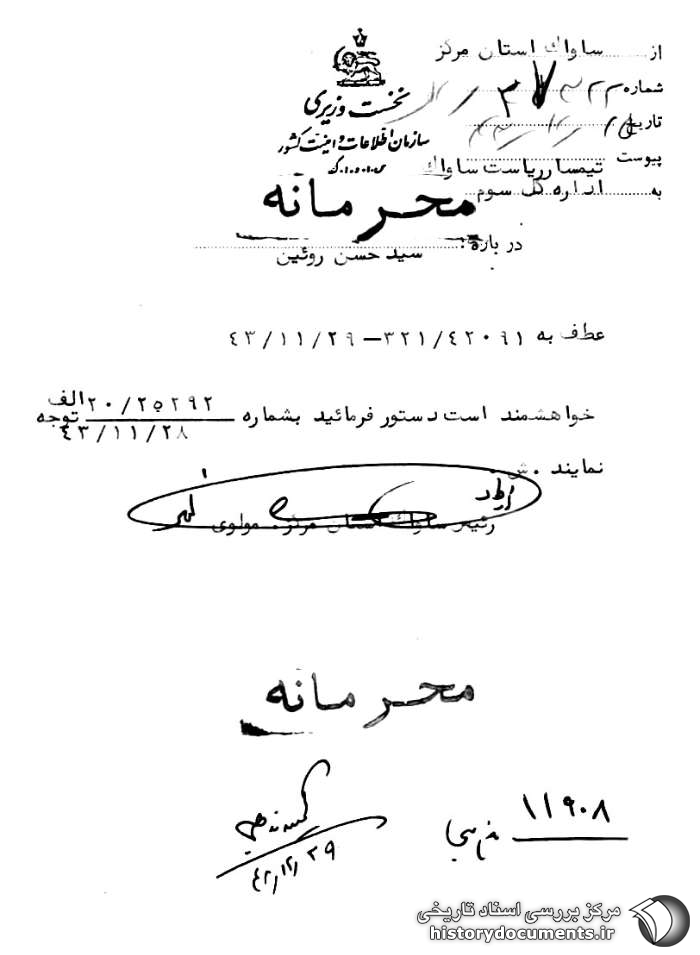 از ساواک استان مرکز
شماره
تاریخ
پیوست
نخست وزیری
سازمان اطلاعات و امنیت کشور
س.ا.و.ا.ک
به تیمسار ریاست ساواک
اداره کل سوم
محرمانه
درباره: سید حسن روئین
عطف به ۳۲۱/۴۲۰۹۱ – ۴۳/۱۱/۲۹
خواهشمند است دستور فرمائید بشماره ۲۰/۲۵۲۹۲الف توجه
۴۳/۱۱/۲۸
نمایند . ش.
رئیس ساواک استان مرکز. مولوی
محرمانه
۱۱۹۰۸
مرکز بررسی اسناد تاریخی
historydocuments.ir